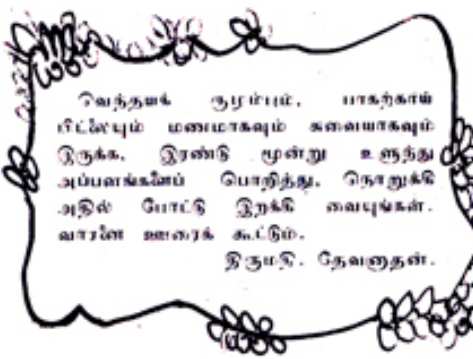 வெந்தயக் குழம்பும், பாகற்காய்
பிட்லையும் மணமாகவும் சுவையாகவும்
இருக்க, இரண்டு மூன்று உளுந்து
அப்பளங்களைப் பொறித்து, நொறுக்கி
அதில் போட்டு இறக்கி வையுங்கள்.
வாசனை ஊரைக் கூட்டும்.
திருமதி. தேவனாதன்.